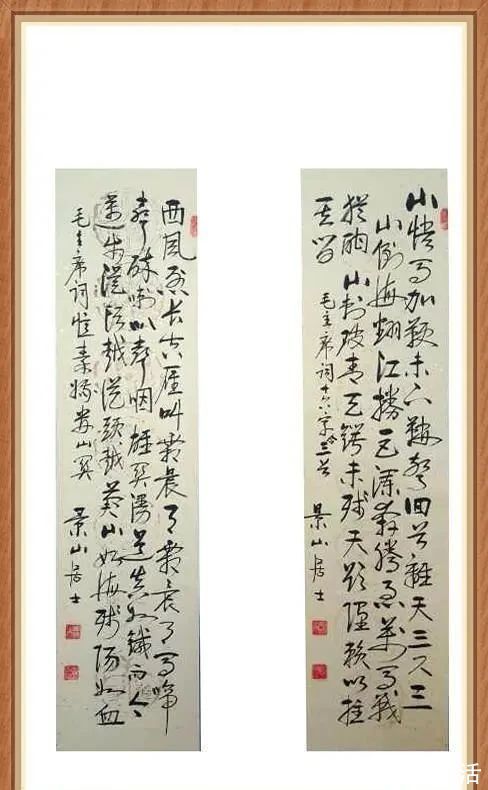 山快马加鞭未下鞍驚回首離天三尺三
山倒海翻江捲巨澜奔腾急萬马戰
犹酣 山刺破青天锷未残天欲堕赖以拄
其间
毛主席词十六字令三首 景山居士
西风烈长空雁叫霜晨月霜晨月马啼
声碎喇叭声咽雄关漫道真如鐵而今
迈步從頭越從頭越苍山如海残阳如血
毛主席词忆秦娥娄山关 景山居士
活